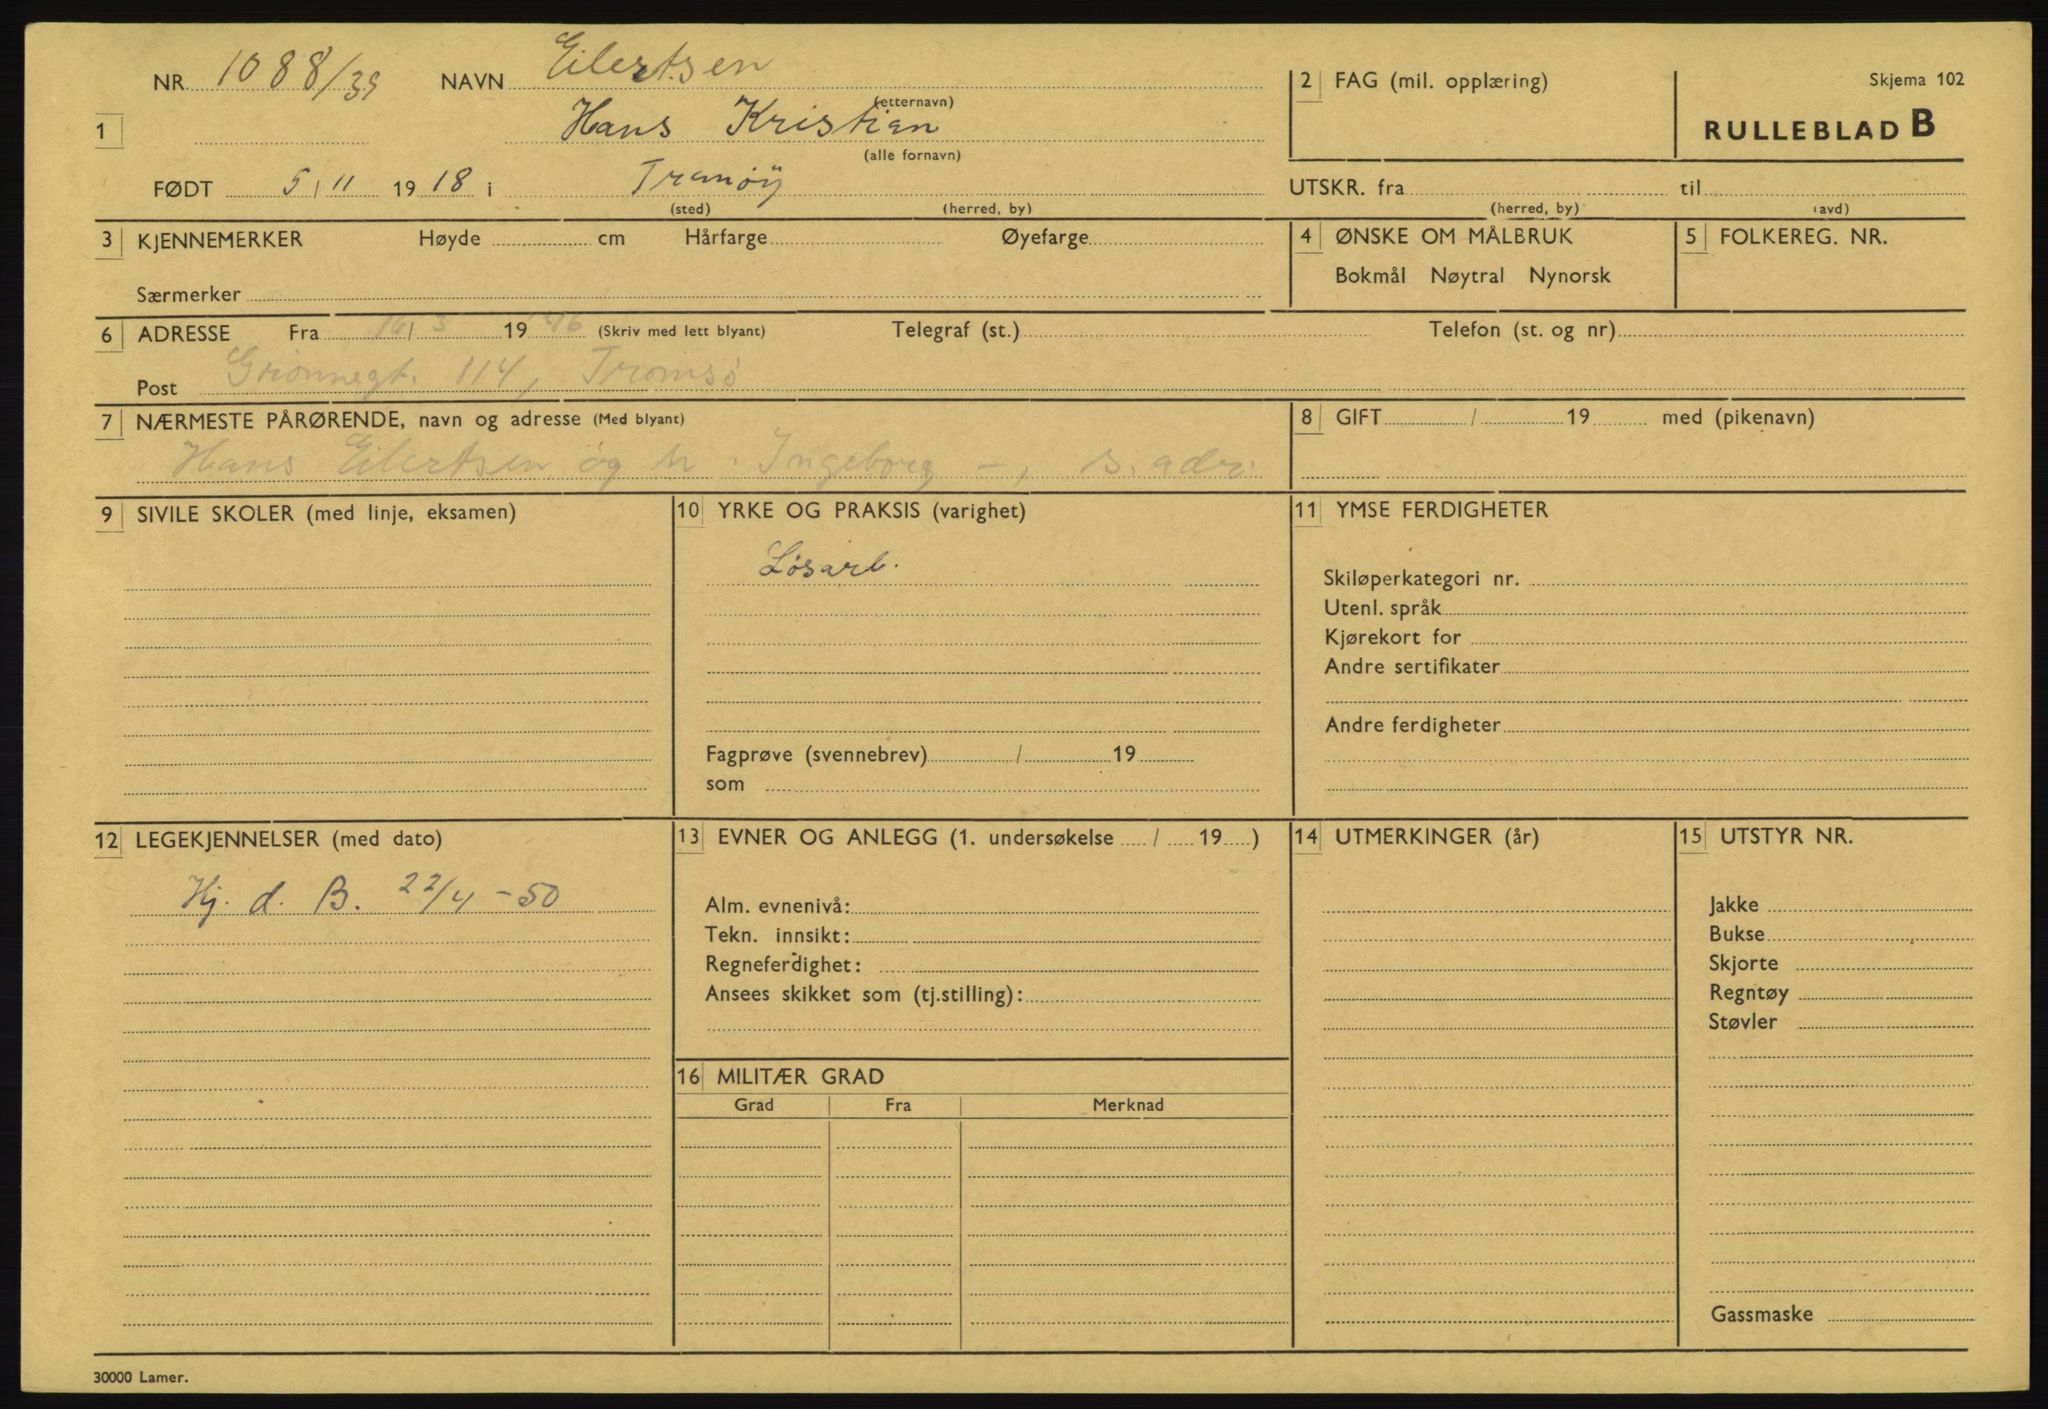 NR. 1088/39 NAVN Eilertsen
(etternavn)
1 Hans Kristian
(alle fornavn)
FØDT 5/11 1918 i Tranöy
(sted) (herred, by)
2 FAG (mil. opplæring)
Skjema 102
RULLEBLAD B
UTSKR. fra til
(herred, by) (avd)
3 KJENNEMERKER Høyde cm Hårfarge Øyefarge
Særmerker
4 ØNSKE OM MÅLBRUK
Bokmål Nøytral Nynorsk
5 FOLKEREG. NR.
6 ADRESSE Fra 16/3 1946 (Skriv med lett blyant) Telegraf (st.) Telefon (st. og nr)
Post Grönnegt. 114, Tromsö
7 NÆRMESTE PÅRØRENDE, navn og adresse (Med blyant)
Hans Eilertsen og h. Ingeborg -, s. adr.
8 GIFT / 19 med (pikenavn)
9 SIVILE SKOLER (med linje, eksamen)
10 YRKE OG PRAKSIS (varighet)
Lösarb.
Fagprøve (svennebrev) / 19
som
11 YMSE FERDIGHETER
Skiløperkategori nr.
Utenl. språk
Kjørekort for
Andre sertifikater
Andre ferdigheter
12 LEGEKJENNELSER (med dato)
Hj. d. B. 22/4-50
13 EVNER OG ANLEGG (1. undersøkelse / 19 )
Alm. evnenivå:
Tekn. innsikt:
Regneferdighet:
Ansees skikket som (tj.stilling):
14 UTMERKINGER (år)
15 UTSTYR NR.
Jakke
Bukse
Skjorte
Regntøy
Støvler
Gassmaske
16 MILITÆR GRAD
Grad Fra Merknad
30000 Lamer.